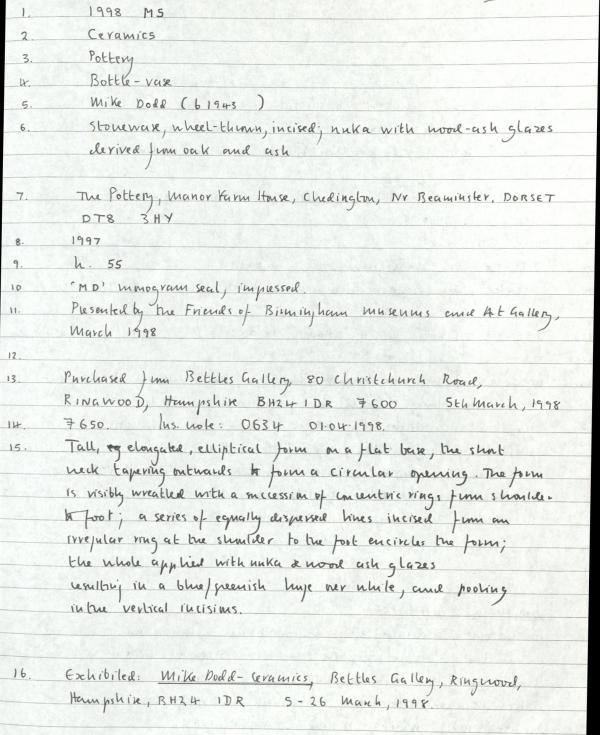 1. 1998 MS
2. Ceramics
3. Pottery
4. Bottle-vase
5. Mike Dodd (b 1943 )
6. Stoneware, wheel-thrown, incised; nuka with wood-ash glazes
derived from oak and ash
7. The Pottery, Manor Farm House, Chedington, Nr Beaminster, DORSET
DT8 3HY
8. 1997
9. h. 55
10 'MD' monogram seal, impressed.
11. Presented by the Friends of Birmingham Museums and Art Gallery,
March 1998
12.
13. Purchased from Bettles Gallery, 80 Christchurch Road,
RINGWOOD, Hampshire BH24 1DR £600 5th March, 1998
14. £650. Ins. note: 0634 01.04.1998.
15. Tall, elongated, elliptical form on a flat base, the short
neck tapering outwards to form a circular opening. The form
is visibly wreathed with a succession of concentric rings from shoulder
to foot; a series of equally dispersed lines incised from an
irregular ring at the shoulder to the foot encircles the form;
the whole applied with nuka & wood ash glazes
resulting in a blue/greenish huge over white, and pooling
in the vertical incisions.
16. Exhibited: Mike Dodd - Ceramics, Bettles Gallery, Ringwood,
Hampshire, BH24 1DR 5-26 March, 1998.